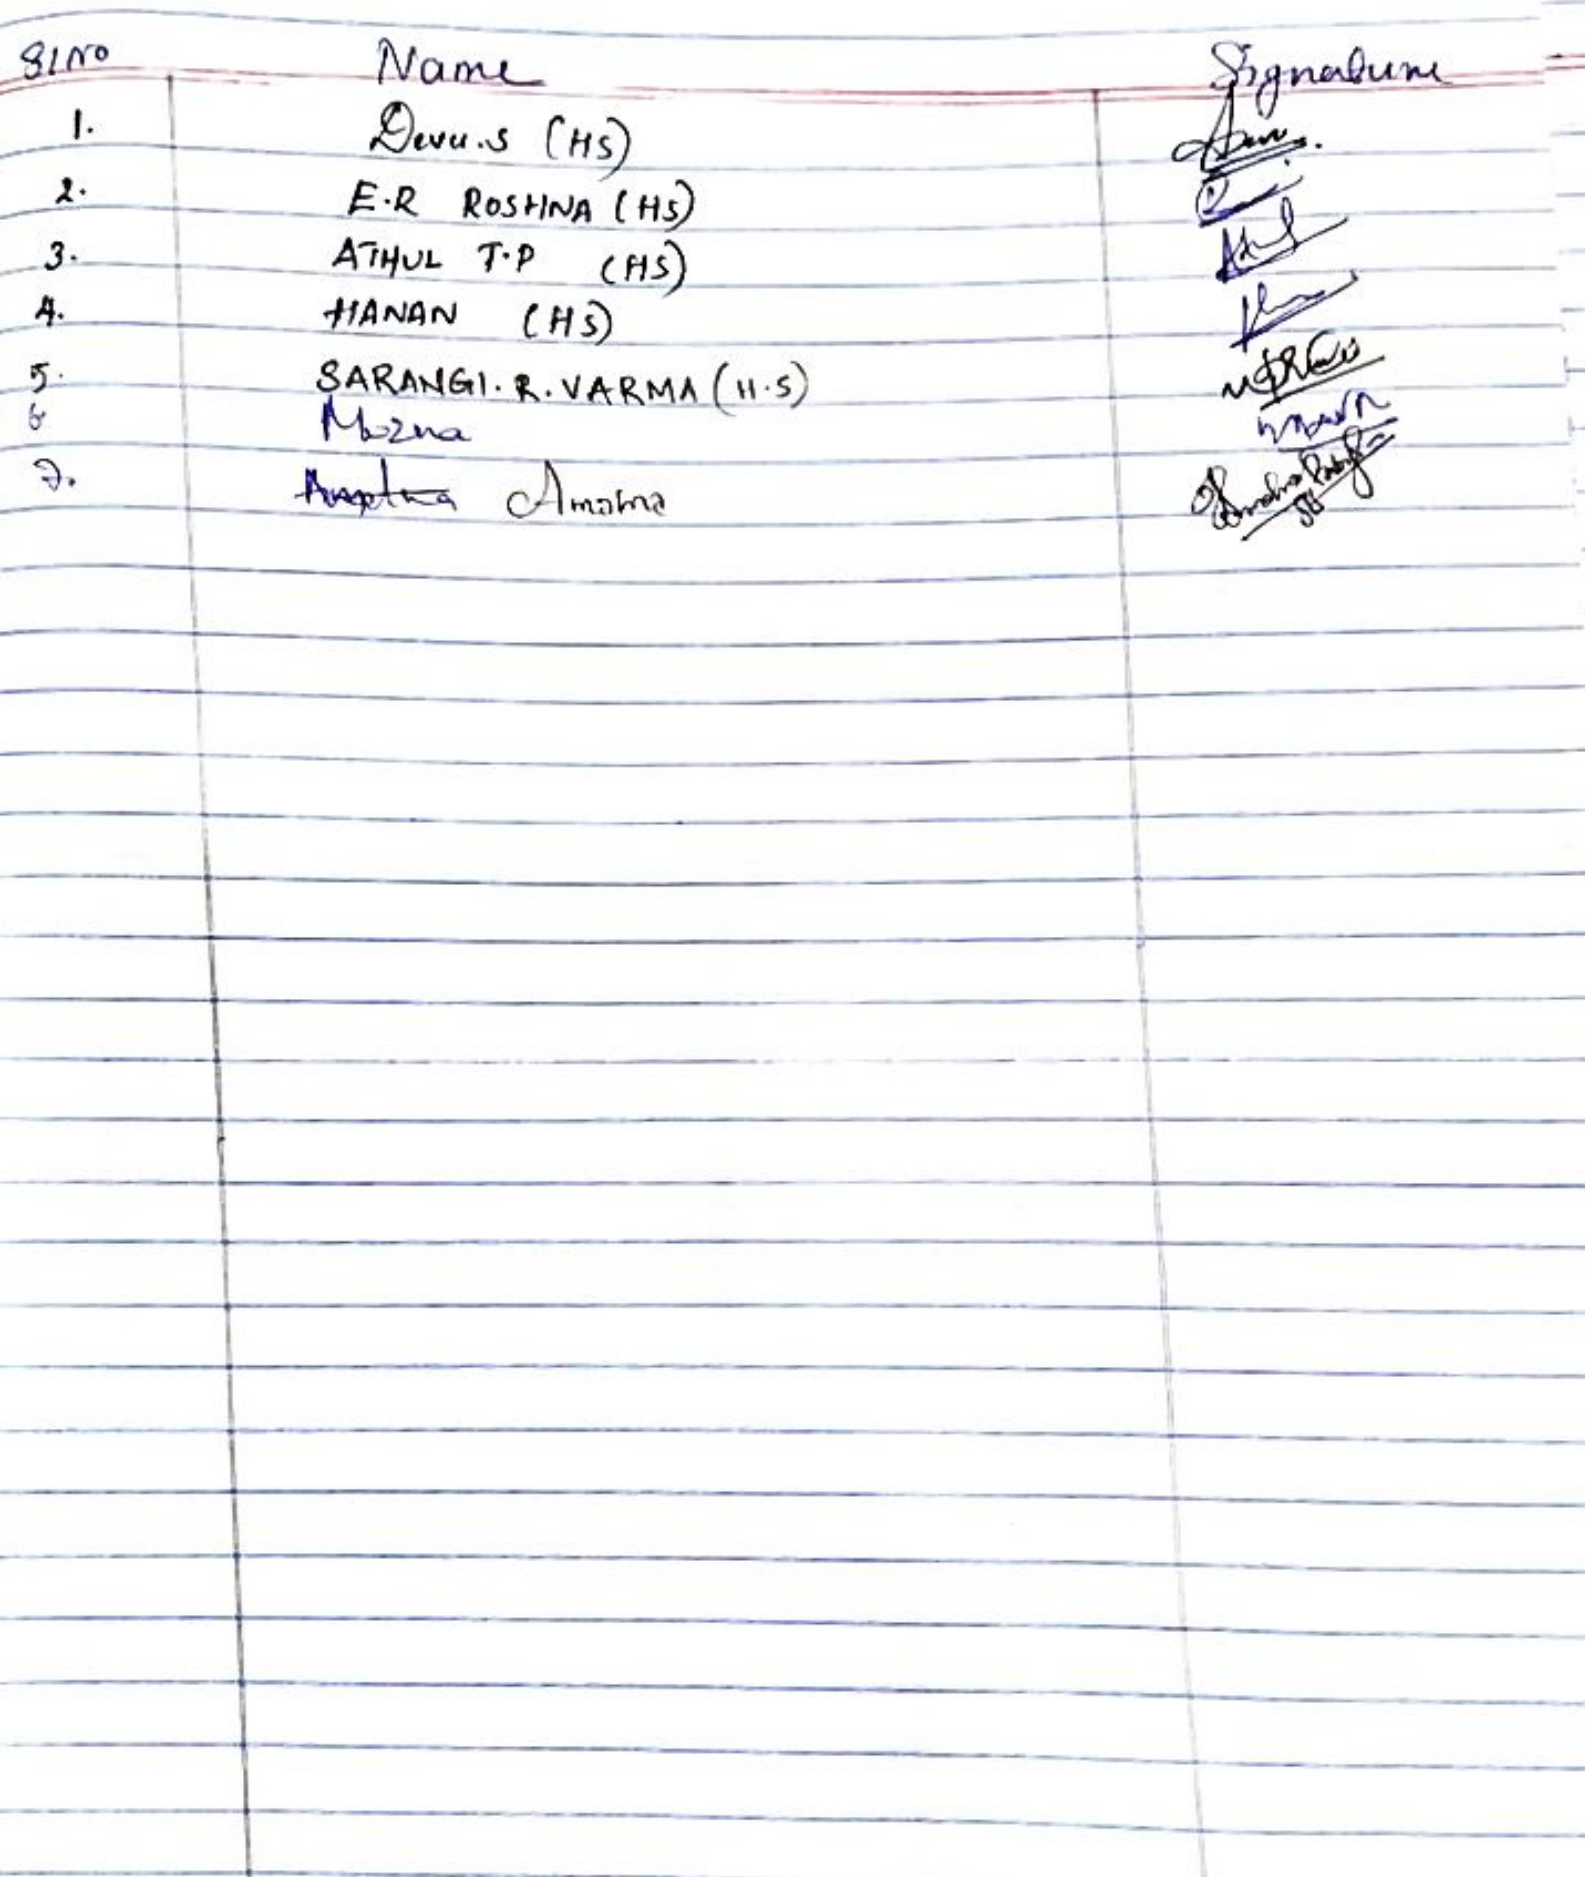 Sl No Name Signature
1. Devu.S (HS)
2. E.R ROSHNA (HS)
3. ATHUL T.P (HS) Athul
4. HANAN (HS)
5. SARANGI.R.VARMA (H.S)
6 Mozna
7. Amalna